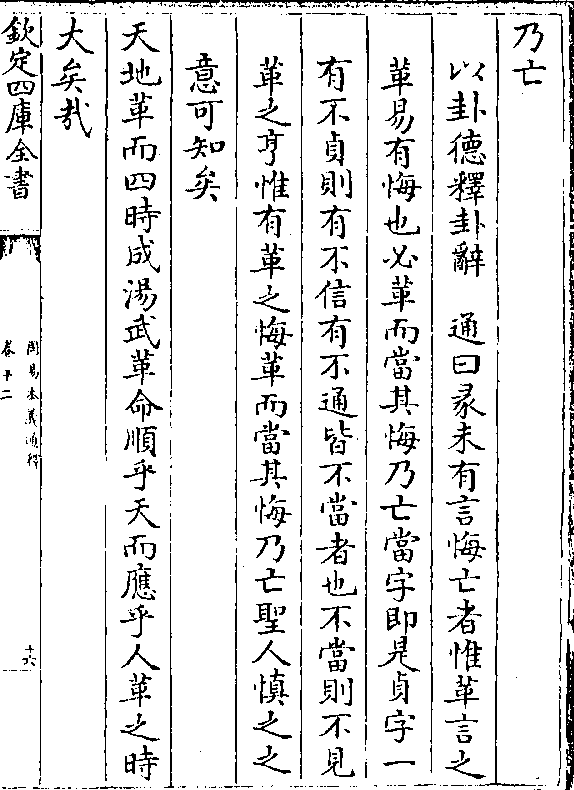 乃亡
以卦德釋卦辭　通曰彖未有言悔亡者惟革言之
革易有悔也必革而當其悔乃亡當字即是貞字一
有不貞則有不信有不通皆不當者也不當則不見
革之亨惟有革之悔革而當其悔乃亡聖人慎之之
意可知矣
天地革而四時成湯武革命順乎天而應乎人革之時
大矣哉
欽定四庫全書
周易本義通釋
卷十二
十六